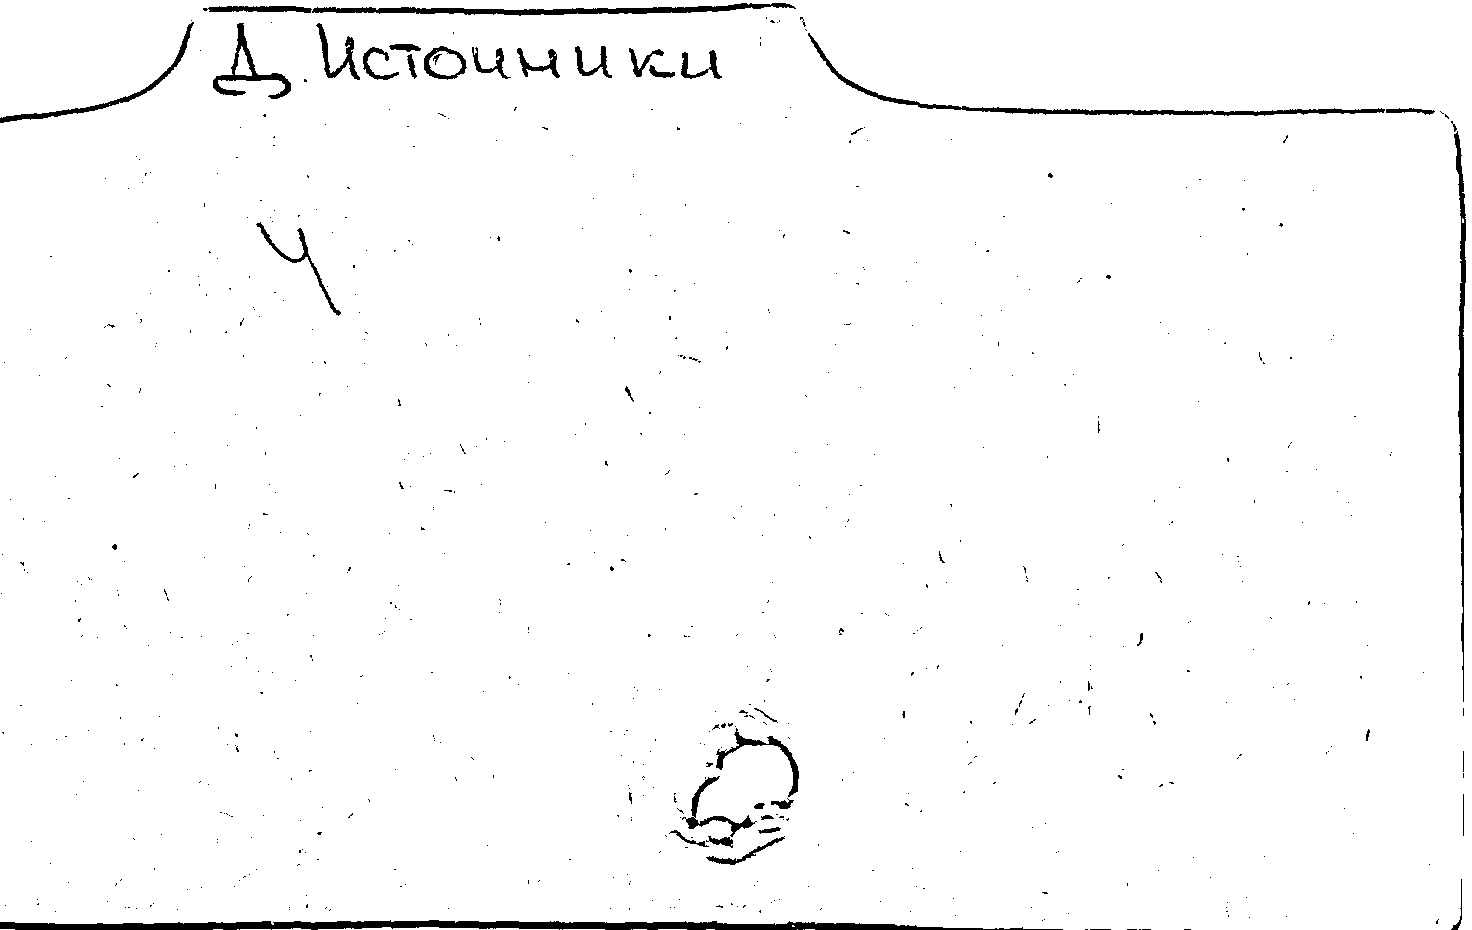 Д. Источники
Ч